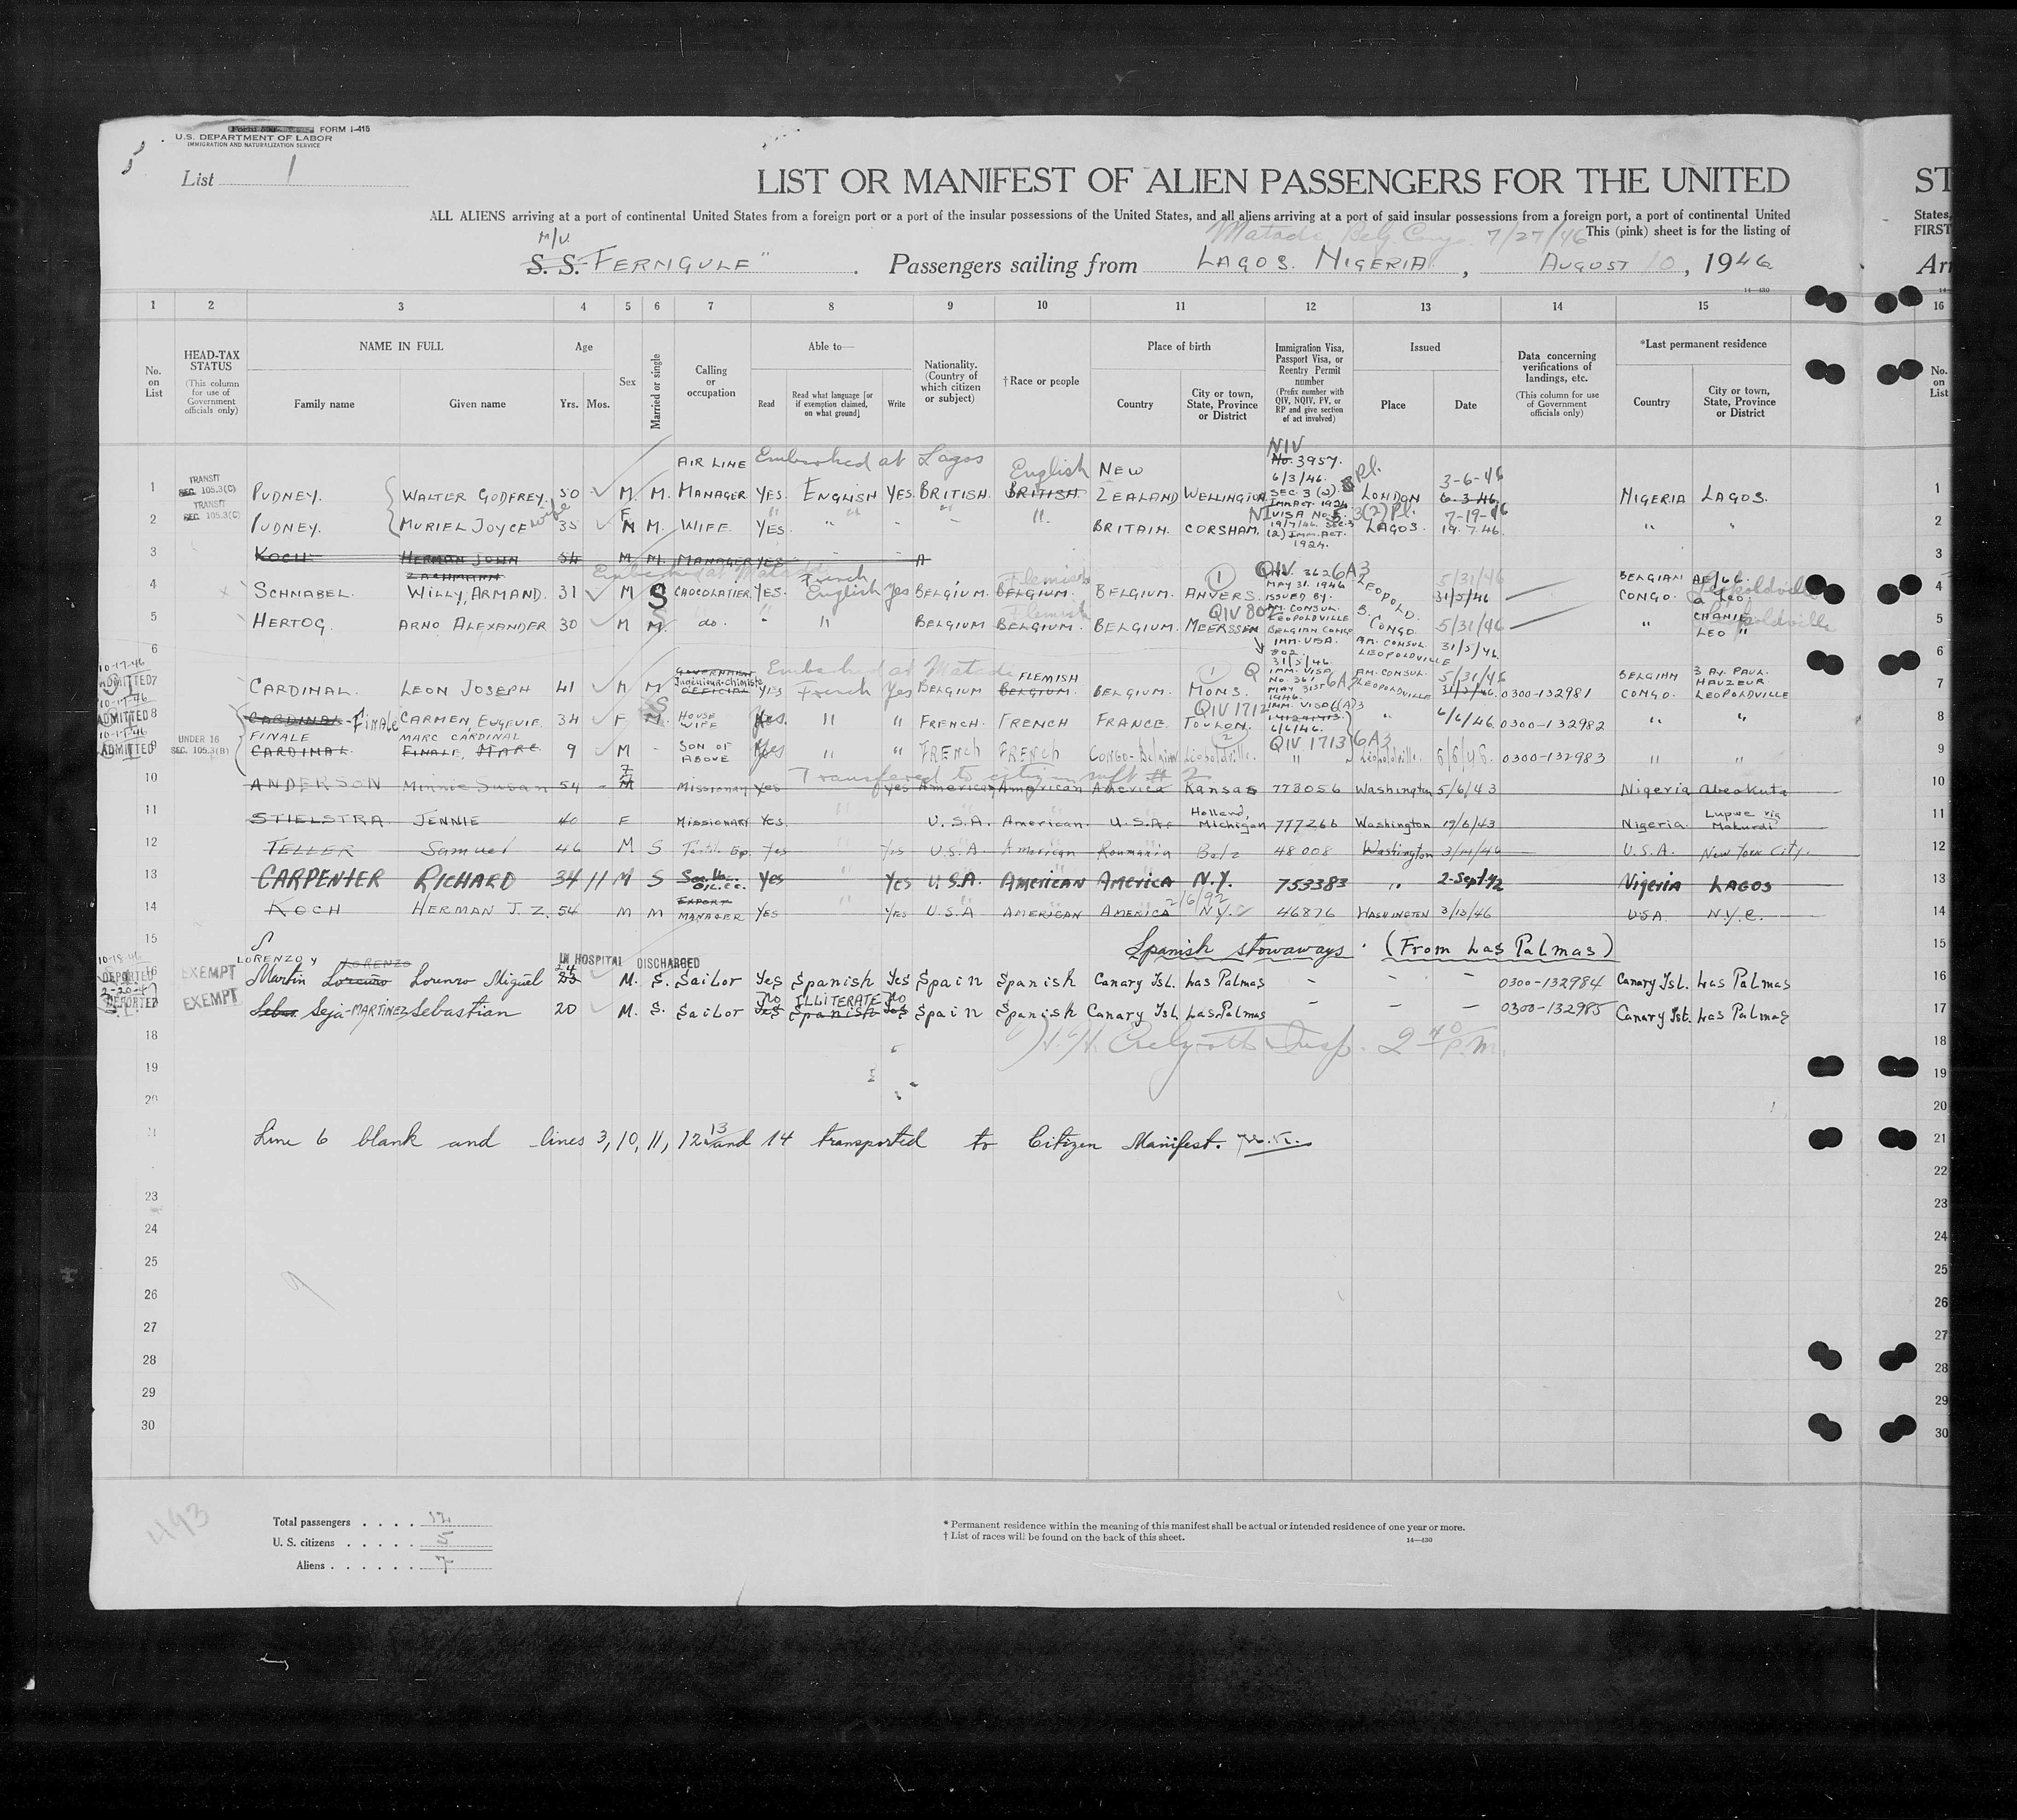 FORM I-415
U.S. DEPARTMENT OF LABOR
IMMIGRATION AND NATURALIZATION SERVICE
List 1
LIST OR MANIFEST OF ALIEN PASSENGERS FOR THE UNITED ST
ALL ALIENS arriving at a port of continental United States from a foreign port or a port of the insular possessions of the United States, and all aliens arriving at a port of said insular possessions from a foreign port, a port of continental United States,
Matadi, Belg. Congo. 7/27/46 This (pink) sheet is for the listing of FIRST
M/V.
S. S. FERNGULF" . Passengers sailing from LAGOS. NIGERIA , AUGUST 10 , 1946 Arr
14—430
1 2 3 4 5 6 7 8 9 10 11 12 13 14 15 16
No. on List
HEAD-TAX STATUS
(This column for use of Government officials only)
NAME IN FULL
Family name Given name
Age
Yrs. Mos.
Sex
Married or single
Calling or occupation
Able to—
Read
Read what language [or if exemption claimed, on what ground]
Write
Nationality. (Country of which citizen or subject)
† Race or people
Place of birth
Country
City or town, State, Province or District
Immigration Visa, Passport Visa, or Reentry Permit number
(Prefix number with QIV, NQIV, PV, or RP and give section of act involved)
Issued
Place Date
Data concerning verifications of landings, etc.
(This column for use of Government officials only)
*Last permanent residence
Country
City or town, State, Province or District
No. on List
Embarked at Lagos
1 TRANSIT SEC. 105.3(C) PUDNEY. WALTER GODFREY. 50 M. M. AIR LINE MANAGER YES. ENGLISH YES. BRITISH. English BRITISH NEW ZEALAND WELLINGTON NIV No. 3957. 6/3/46. SEC. 3 (2). IM.ACT. 1924 LONDON 3-6-46 6-3-46 NIGERIA LAGOS. 1
2 TRANSIT SEC. 105.3(C) PUDNEY. MURIEL JOYCE wife 35 F M M. WIFE YES. " " - - " BRITAIN. CORSHAM. VISA No. 5. 3(2) Pl. 19/7/46. SEC. 3 (2) IMM. ACT. 1924. LAGOS. 7-19-46 19.7.46. " " 2
3 KOCH HERMAN JOHN ZACHMANN 54 M. M. MANAGER YES 3
Embarked at Matadi
4 SCHNABEL. WILLY, ARMAND. 31 M S CHOCOLATIER. YES. French English Yes BELGIUM. Flemish BELGIUM. BELGIUM. ANVERS. QIV No. 362 6A3 MAY 31. 1946 ISSUED BY. AM. CONSUL. LEOPOLDVILLE BELGIAN CONGO LEOPOLD. B. CONGO 5/31/46 31/5/46 BELGIAN CONGO Leopoldville 4
5 HERTOG. ARNO ALEXANDER 30 M M. do. " " BELGIUM Flemish BELGIUM. BELGIUM. MEERSSEN QIV 802 IMM. VISA. 802 31/5/46. AM. CONSUL LEOPOLDVILLE 5/31/46 31/5/46. " LEO " 5
6 Embarked at Matadi 6
10-17-46 ADMITTED 7 CARDINAL. LEON JOSEPH 41 M M GOVERNMENT OFFICIAL Ingénieur-Chimiste YES French Yes BELGIUM FLEMISH BELGIUM. BELGIUM. MONS. IMM. VISA No. 361 MAY 31ST 1946. 6A3 AM. CONSUL. LEOPOLDVILLE 5/31/46 31/5/46. 0300-132981 BELGIAN CONGO. 3 AV. PAUL. HAUZEUR. LEOPOLDVILLE 7
10-17-46 ADMITTED 8 CARDINAL - Finale CARMEN, EUGENIE. 34 F S M. HOUSE WIFE Yes. " " FRENCH. FRENCH FRANCE TOULON. QIV 1712 IMM. VISA 6(A)3 6/6/46. " 6/6/46. 0300-132982 " " 8
ADMITTED 9 UNDER 16 SEC. 105.3(B) FINALE CARDINAL. MARC CARDINAL FINALE, MARC. 9 M - SON OF ABOVE Yes " " FRENCH FRENCH CONGO-Belgian Léopoldville. QIV 1713 6A3 " Léopoldville. 6/6/46. 0300-132983 " " 9
Transferred to citizen mft # 2
10 ANDERSON Minnie Susan 54 - F M Missionary Yes Yes American American America Kansas 773056 Washington 5/6/43 Nigeria Abeokuta 10
11 STIELSTRA JENNIE 40 F MISSIONARY YES. " U.S.A. American. U.S.A. Holland, Michigan 777266 Washington 19/6/43 Nigeria. Lupwe via Makurdi 11
12 TELLER Samuel 46 M S Yes Yes U.S.A. American Roumania 48008 Washington U.S.A. New York City. 12
13 CARPENTER RICHARD 34 11 M S Yes " Yes U.S.A. AMERICAN AMERICA N.Y. 753383 " 2-Sept-42 Nigeria LAGOS 13
14 KOCH HERMAN J. Z. 54 M M EXPORT MANAGER YES " YES U.S.A AMERICAN AMERICA 2/6/92 N.Y. 46876 WASHINGTON 3/13/46 USA N.Y.C. 14
15 Spanish stowaways. (From Las Palmas) 15
10-18-46 DEPORTED 16 EXEMPT LORENZO Y LORENZO Martin Lorenzo Miguel IN HOSPITAL DISCHARGED 24 M. S. Sailor Yes Spanish Yes Spain Spanish Canary Isl. Las Palmas - - - 0300-132984 Canary Isl. Las Palmas 16
2-20-47 DEPORTED EXEMPT Seja-MARTINEZ Sebastian 20 M. S. Sailor No Yes ILLITERATE Spanish No Yes Spain Spanish Canary Isl. Las Palmas - - - 0300-132985 Canary Isl. Las Palmas 17
18 Insp. 2 40 P.M. 18
19 19
20 20
21 Line 6 blank and lines 3, 10, 11, 12 13 and 14 transported to Citizen Manifest. 21
22
23 23
24 24
25 25
26 26
27 27
28 28
29 29
30 30
493
Total passengers . . . . 12
U. S. citizens . . . . . 5
Aliens . . . . . . 7
* Permanent residence within the meaning of this manifest shall be actual or intended residence of one year or more.
† List of races will be found on the back of this sheet.
14—430